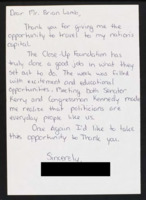 Dear Mr. Brian Lamb,
Thank you for giving me the
opportunity to travel to my nation's
capital.
The Close-Up Foundation has
truly done a good job in what they
set out to do. The week was filled
with excitement and educational
opportunities. Meeting both Senator
Kerry and Congressman Kennedy made
me realize that politicians are
everyday people like us.
Once Again I'd like to take
this opportunity to Thank you.
Sincerely,